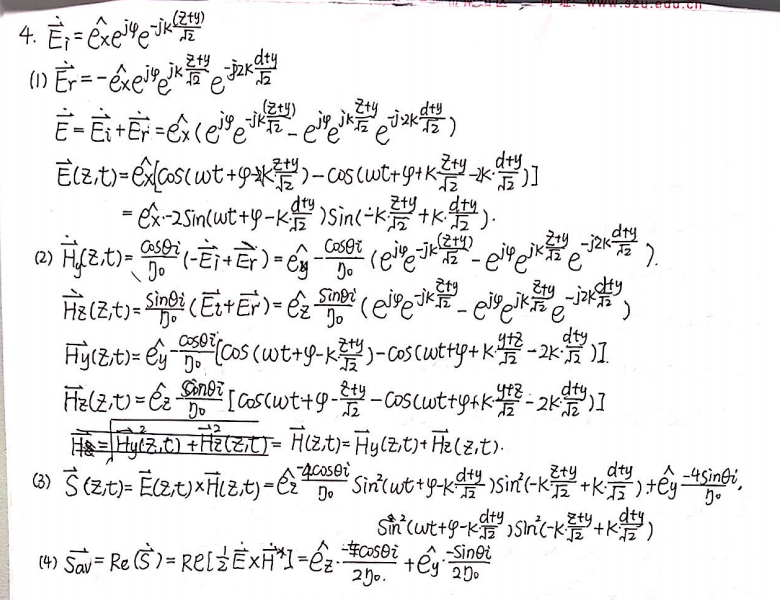 www.szu.edu.cn
4. $\dot{\vec{E}}_i = \hat{e}_x e^{j\varphi} e^{-jk\frac{(z+y)}{\sqrt{2}}}$
(1) $\dot{\vec{E}}_r = -\hat{e}_x e^{j\varphi} e^{jk\frac{z+y}{\sqrt{2}}} e^{-j2k\frac{d+y}{\sqrt{2}}}$
$\dot{\vec{E}} = \dot{\vec{E}}_i + \dot{\vec{E}}_r = \hat{e}_x (e^{j\varphi} e^{-jk\frac{(z+y)}{\sqrt{2}}} - e^{j\varphi} e^{jk\frac{z+y}{\sqrt{2}}} e^{-j\cdot 2k\frac{d+y}{\sqrt{2}}})$
$\vec{E}(z,t) = \hat{e}_x [\cos(\omega t + \varphi - k\frac{z+y}{\sqrt{2}}) - \cos(\omega t + \varphi + k\cdot\frac{z+y}{\sqrt{2}} - 2k\cdot\frac{d+y}{\sqrt{2}})]$
$= \hat{e}_x \cdot -2\sin(\omega t + \varphi - k\cdot\frac{d+y}{\sqrt{2}}) \sin(-k\cdot\frac{z+y}{\sqrt{2}} + k\cdot\frac{d+y}{\sqrt{2}}).$
(2) $\dot{\vec{H}}_y(z,t) = \frac{\cos\theta i}{\eta_0} (-\dot{\vec{E}}_i + \dot{\vec{E}}_r) = \hat{e}_y \frac{-\cos\theta i}{\eta_0} (e^{j\varphi} e^{-jk\frac{(z+y)}{\sqrt{2}}} - e^{j\varphi} e^{jk\frac{z+y}{\sqrt{2}}} e^{-j2k\frac{d+y}{\sqrt{2}}}).$
$\dot{\vec{H}}_z(z,t) = \frac{\sin\theta i}{\eta_0} (\dot{\vec{E}}_i + \dot{\vec{E}}_r) = \hat{e}_z \frac{\sin\theta i}{\eta_0} (e^{j\varphi} e^{-jk\frac{z+y}{\sqrt{2}}} - e^{j\varphi} e^{jk\frac{z+y}{\sqrt{2}}} e^{-j2k\frac{d+y}{\sqrt{2}}})$
$\vec{H}_y(z,t) = \hat{e}_y \frac{-\cos\theta i}{\eta_0} [\cos(\omega t + \varphi - k\cdot\frac{z+y}{\sqrt{2}}) - \cos(\omega t + \varphi + k\cdot\frac{y+z}{\sqrt{2}} - 2k\cdot\frac{d+y}{\sqrt{2}})].$
$\vec{H}_z(z,t) = \hat{e}_z \frac{\sin\theta i}{\eta_0} [\cos(\omega t + \varphi - \frac{z+y}{\sqrt{2}} - \cos(\omega t + \varphi + k\cdot\frac{y+z}{\sqrt{2}} - 2k\cdot\frac{d+y}{\sqrt{2}})]$
$= \vec{H}(z,t) = \vec{H}_y(z,t) + \vec{H}_z(z,t).$
(3) $\vec{S}(z,t) = \vec{E}(z,t) \times \vec{H}(z,t) = \hat{e}_z \frac{-4\cos\theta i}{\eta_0} \sin^2(\omega t + \varphi - k\cdot\frac{d+y}{\sqrt{2}}) \sin^2(-k\frac{z+y}{\sqrt{2}} + k\cdot\frac{d+y}{\sqrt{2}}) + \hat{e}_y \frac{-4\sin\theta i}{\eta_0}.$
$\sin^2(\omega t + \varphi - k\cdot\frac{d+y}{\sqrt{2}}) \sin^2(-k\cdot\frac{z+y}{\sqrt{2}} + k\cdot\frac{d+y}{\sqrt{2}})$
(4) $\vec{S}_{av} = Re(\dot{\vec{S}}) = Re[\frac{1}{2}\dot{\vec{E}} \times \dot{\vec{H}}^*] = \hat{e}_z \cdot \frac{-\cos\theta i}{2\eta_0} + \hat{e}_y \cdot \frac{-\sin\theta i}{2\eta_0}$